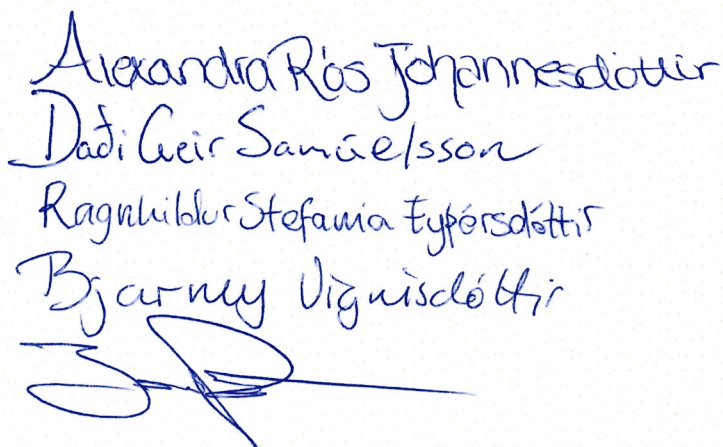 Alexandra Rós Jóhannesdóttir
Daði Geir Samúelsson
Ragnhildur Stefanía Eyþórsdóttir
Bjarney Vignisdóttir